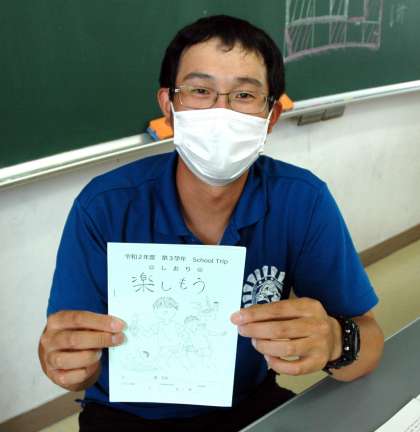 令和2年度　第3学年　School Trip
☺しおり☺
楽しもう